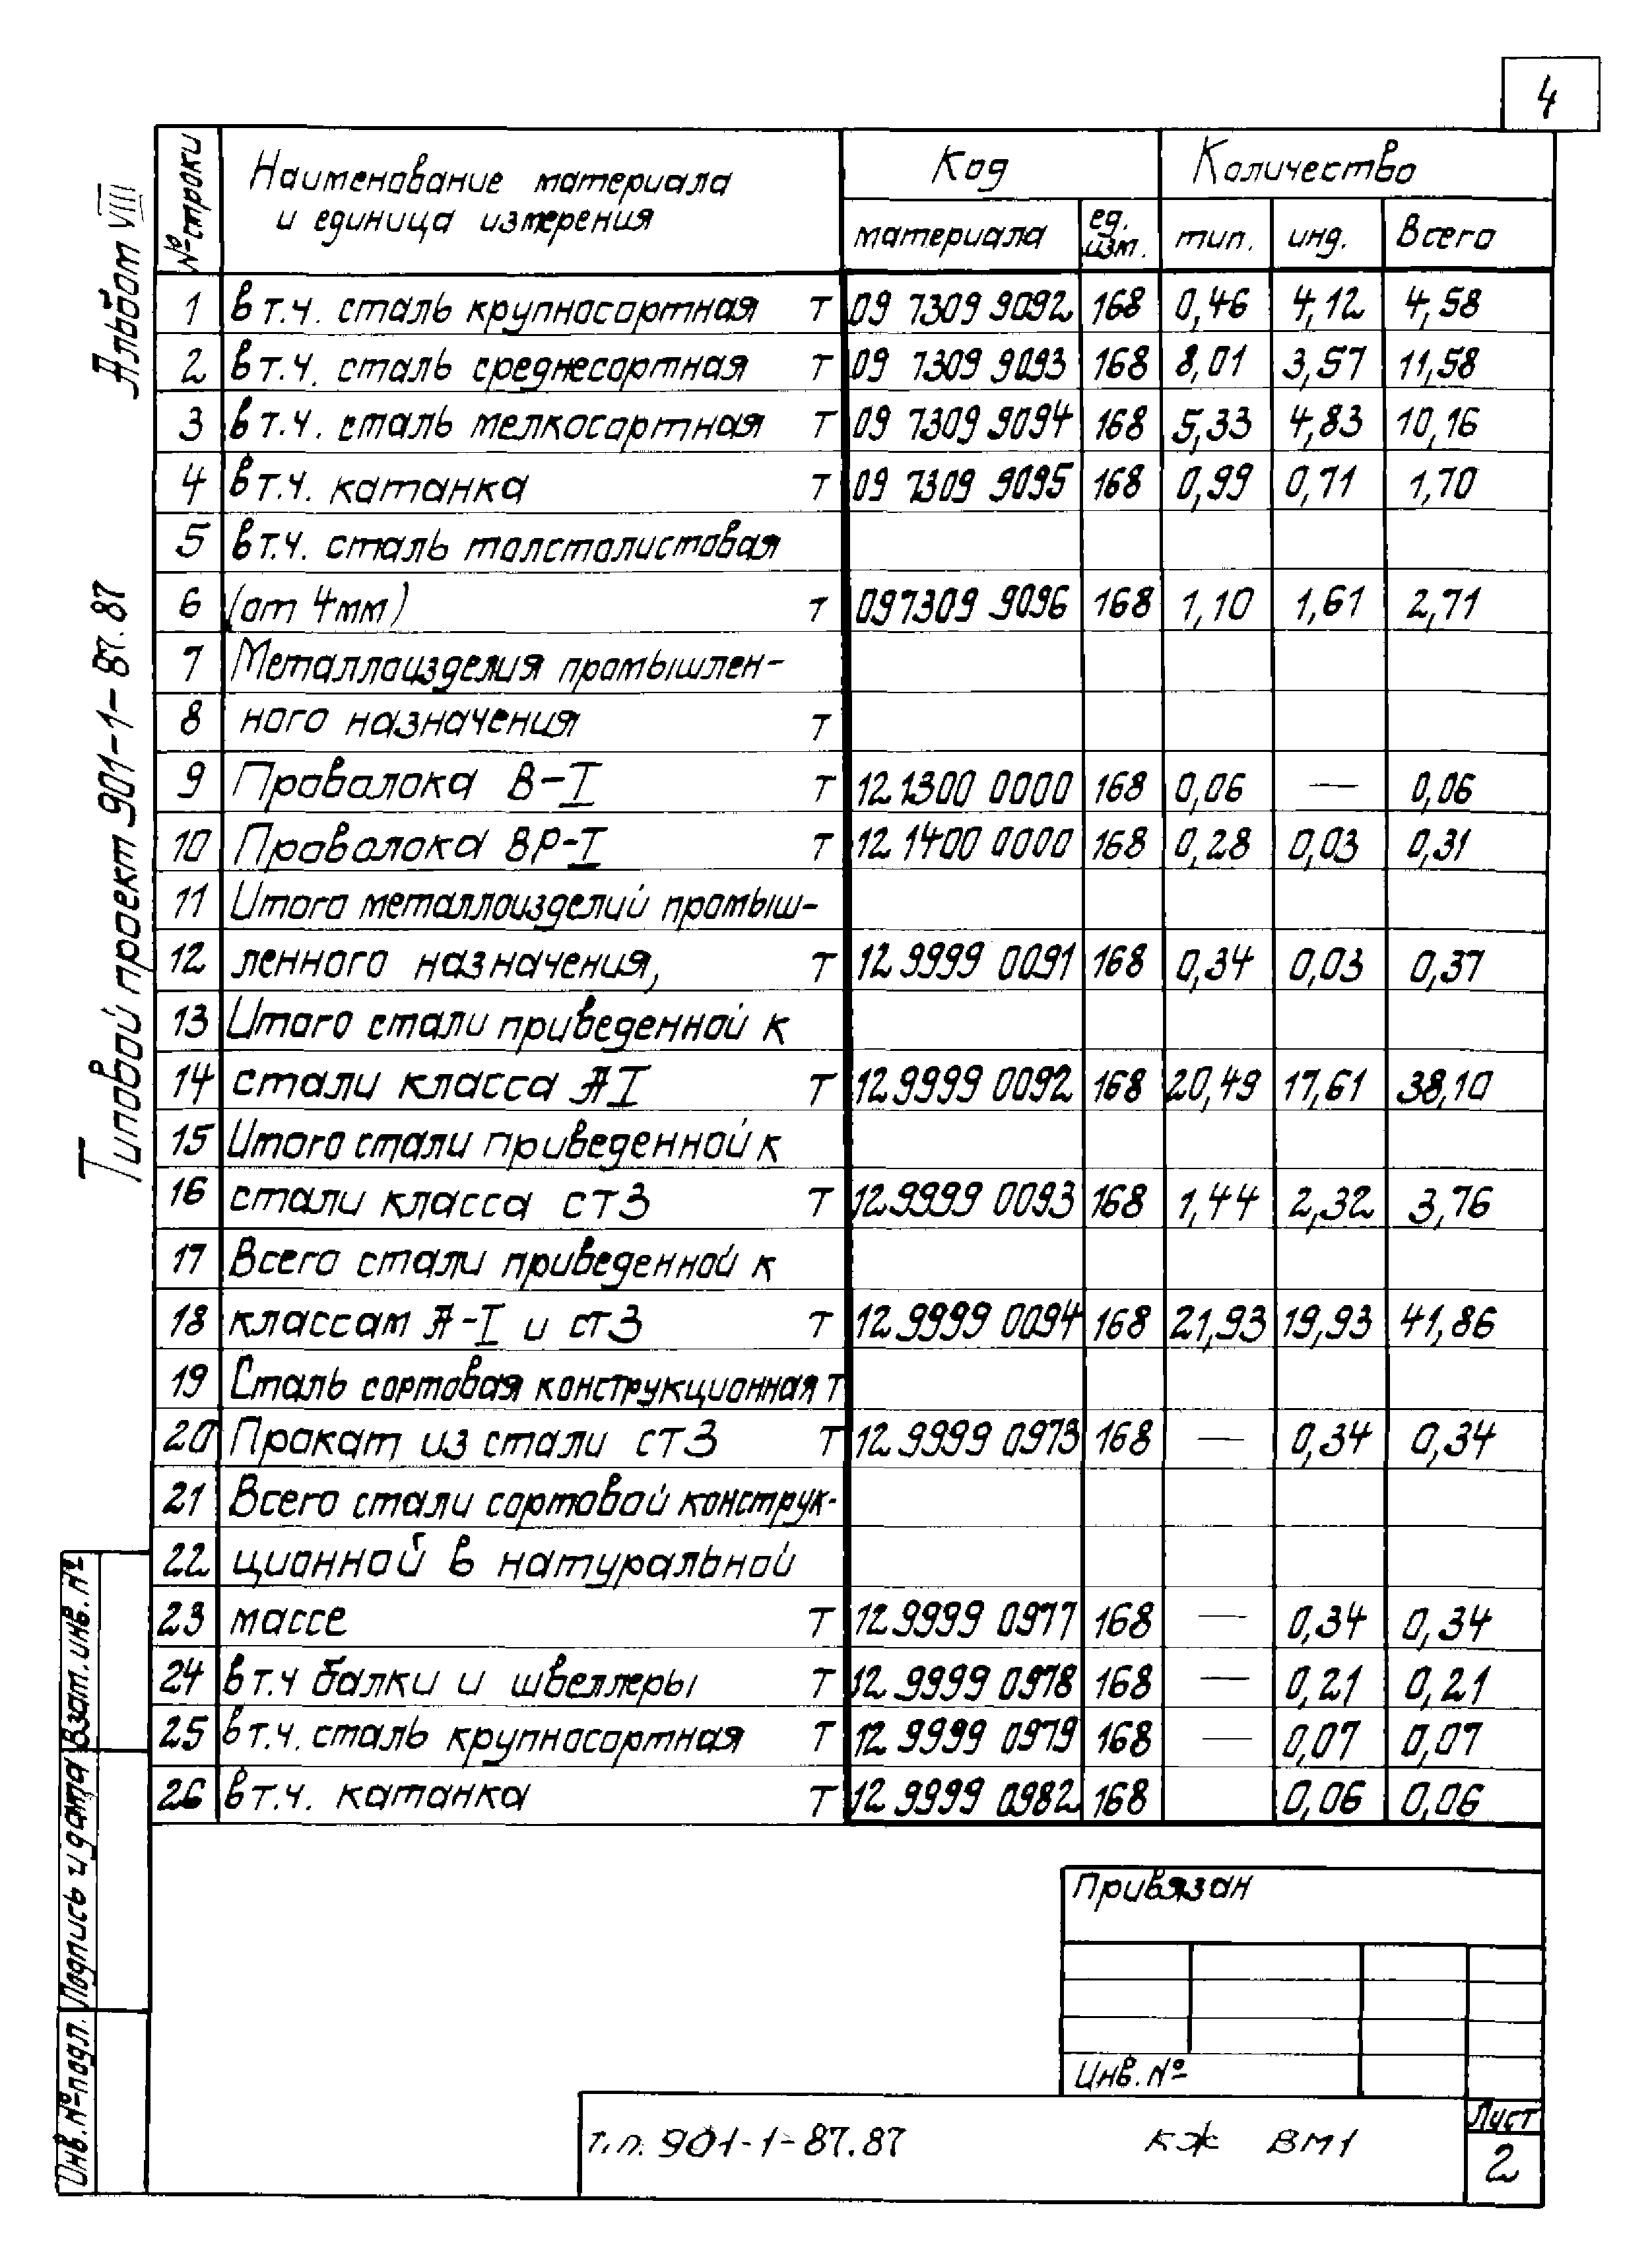 4
Альбом VIII
Типовой проект 901-1-87.87
№ строки
Наименование материала
и единица измерения
Код
Количество
материала
ед. изм.
тип.
инд.
Всего
1 в т.ч. сталь крупносортная т 09 7309 9092 168 0,46 4,12 4,58
2 в т.ч. сталь среднесортная т 09 7309 9093 168 8,01 3,57 11,58
3 в т.ч. сталь мелкосортная т 09 7309 9094 168 5,33 4,83 10,16
4 в т.ч. катанка т 09 7309 9095 168 0,99 0,71 1,70
5 в т.ч. сталь толстолистовая
6 (от 4мм) т 097309 9096 168 1,10 1,61 2,71
7 Металлоизделия промышлен-
8 ного назначения т
9 Проволока В-I т 12 1300 0000 168 0,06 — 0,06
10 Проволока ВР-I т 12 1400 0000 168 0,28 0,03 0,31
11 Итого металлоизделий промыш-
12 ленного назначения, т 12 9999 0091 168 0,34 0,03 0,37
13 Итого стали приведенной к
14 стали класса АI т 12 9999 0092 168 20,49 17,61 38,10
15 Итого стали приведенной к
16 стали класса ст3 т 12 9999 0093 168 1,44 2,32 3,76
17 Всего стали приведенной к
18 классам А-I и ст3 т 12 9999 0094 168 21,93 19,93 41,86
19 Сталь сортовая конструкционная т
20 Прокат из стали ст3 т 12 9999 0973 168 — 0,34 0,34
21 Всего стали сортовой конструк-
22 ционной в натуральной
23 массе т 12 9999 0977 168 — 0,34 0,34
24 в т.ч балки и швеллеры т 12 9999 0978 168 — 0,21 0,21
25 в т.ч. сталь крупносортная т 12 9999 0979 168 — 0,07 0,07
26 в т.ч. катанка т 12 9999 0982 168 0,06 0,06
Взам.инв.№
Подпись и дата
Инв.№подл.
Привязан
Инв.№
т.п. 901-1-87.87 КЖ ВМ1
Лист
2